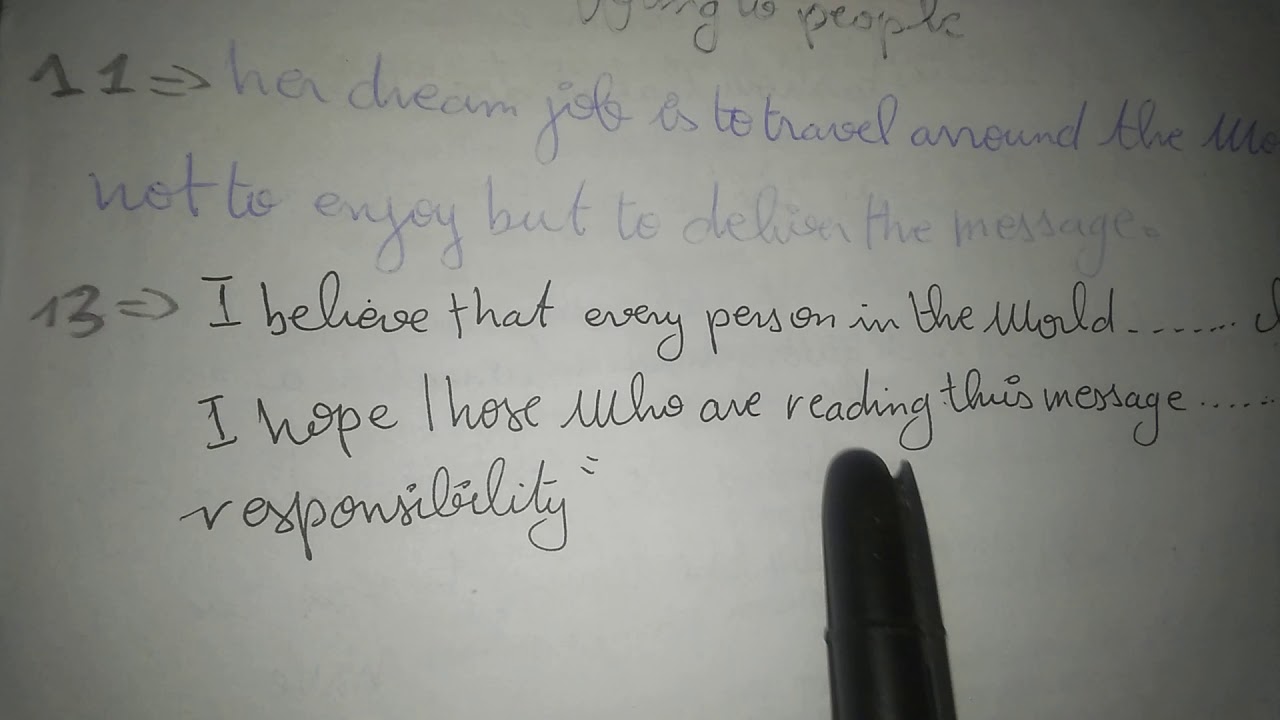 to people
11 => her dream job is to travel arround the
not to enjoy but to deliver the message.
13 => I believe that every person in the world ....... I
I hope those who are reading this message .....
responsibility"